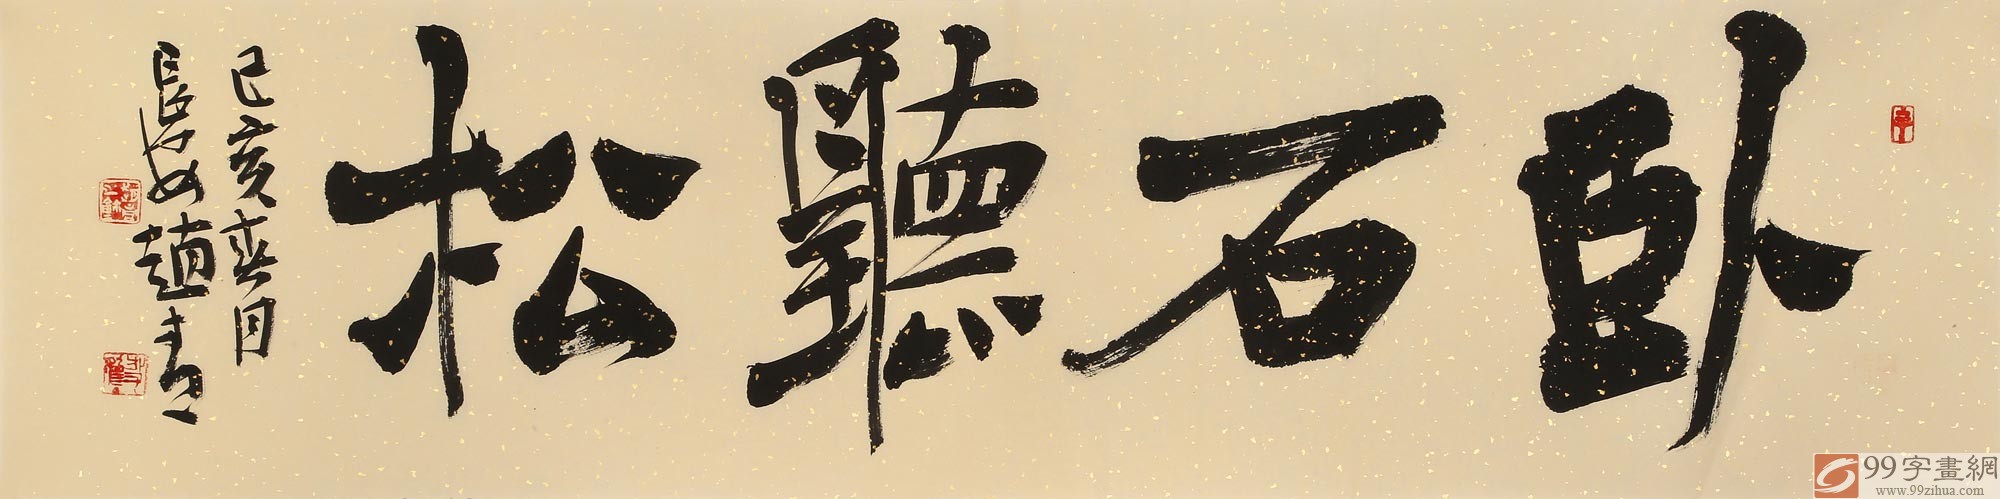 卧石聽松
己亥春月
長安趙青
99字畫網
www.99zihua.com